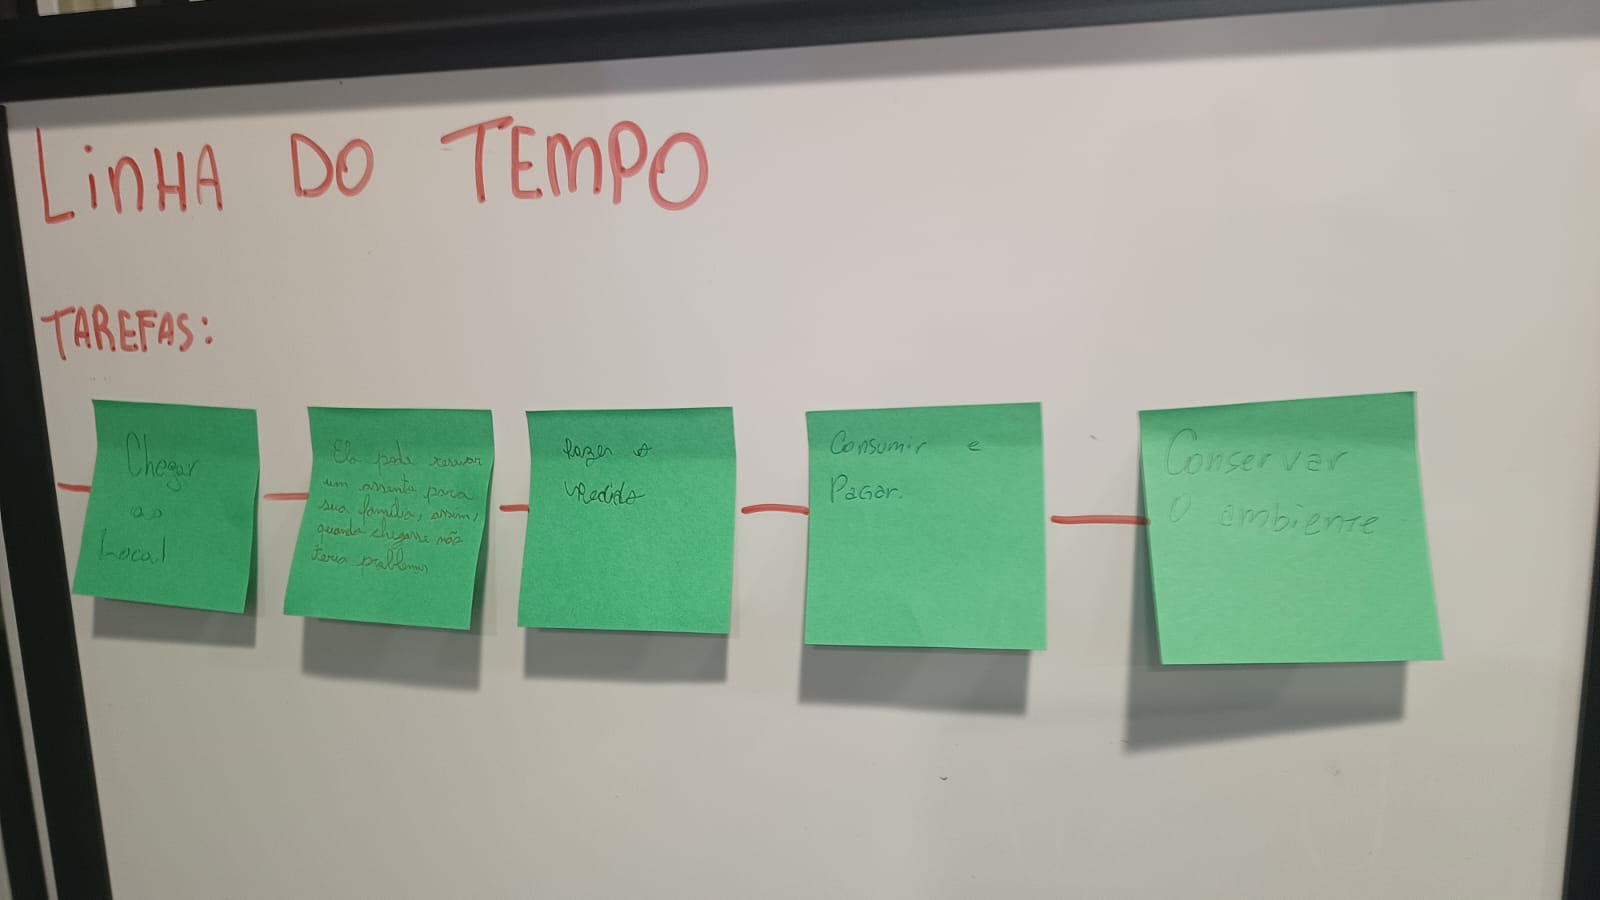 LINHA DO TEMPO
TAREFAS:
Chegar
ao
Local
Ela pode reservar
um assento para
sua família, assim,
quando chegasse não
teria problemas
fazer o
pedido
Consumir e
Pagar.
Conservar
O ambiente